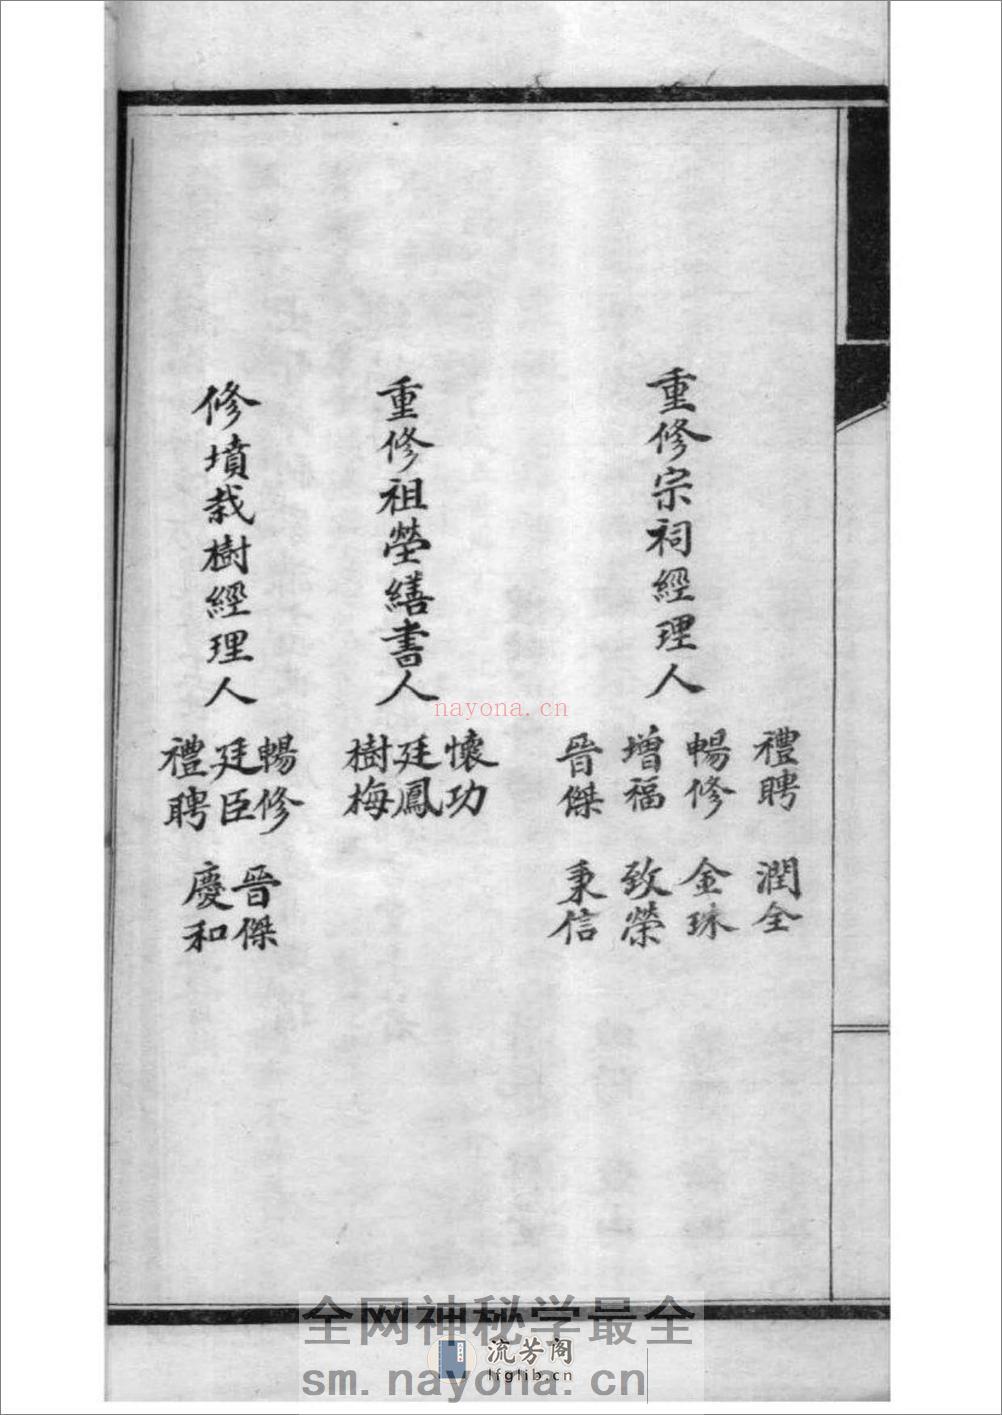 重修宗祠經理人
禮聘 潤全
暢修 金珠
增福 致榮
晉傑 秉信
重修祖塋繕書人
懷功
廷鳳
樹梅
修墳栽樹經理人
暢修 晉傑
廷臣 慶和
禮聘
nayona.cn
全网神秘学最全
流芳阁
lfglib.cn
sm.nayona.cn